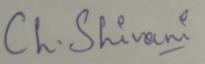 Ch. Shivani